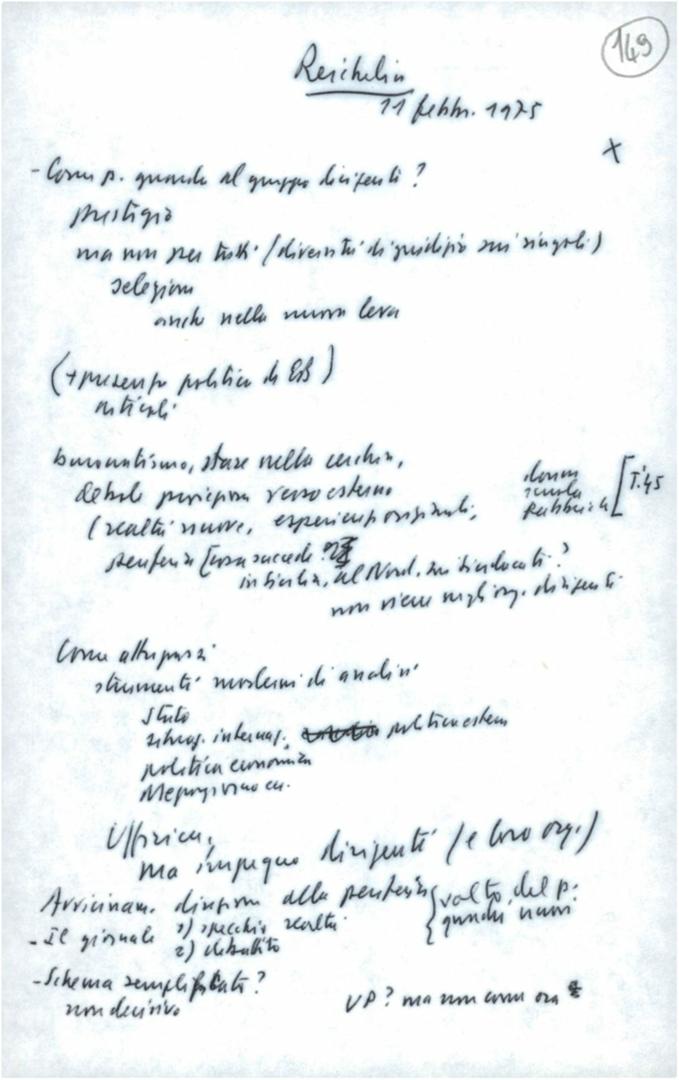 149
Reichlin
11 febbr. 1975
x
- Come p. guarda al gruppo dirigenti?
prestigio
ma non per tutti (diversità di giudizio sui singoli)
selezione
anche nella nuova leva
(+ presenza politica di EB)
articoli
burocratismo, stare nella cerchia,
debole percezione verso esterno
(realtà nuove, esperienze originali,
periferia [cosa succede
in Sicilia, al Nord, sui sindacati?
non viene negli org. dirigenti
donne
scuola
fabbrica
[T. '45
Come attrezzarsi
strumenti moderni di analisi
Stato
situaz. internaz., politica estera
politica economica
Mezzogiorno ecc.
Uffici,
ma impegno dirigenti (e loro org.)
Avvicinam. direzione alla periferia
{ volto del p.
quadri nuovi
- Il giornale 1) specchio realtà
2) dibattito
- Schema semplificato?
non decisivo
UP? ma non come ora